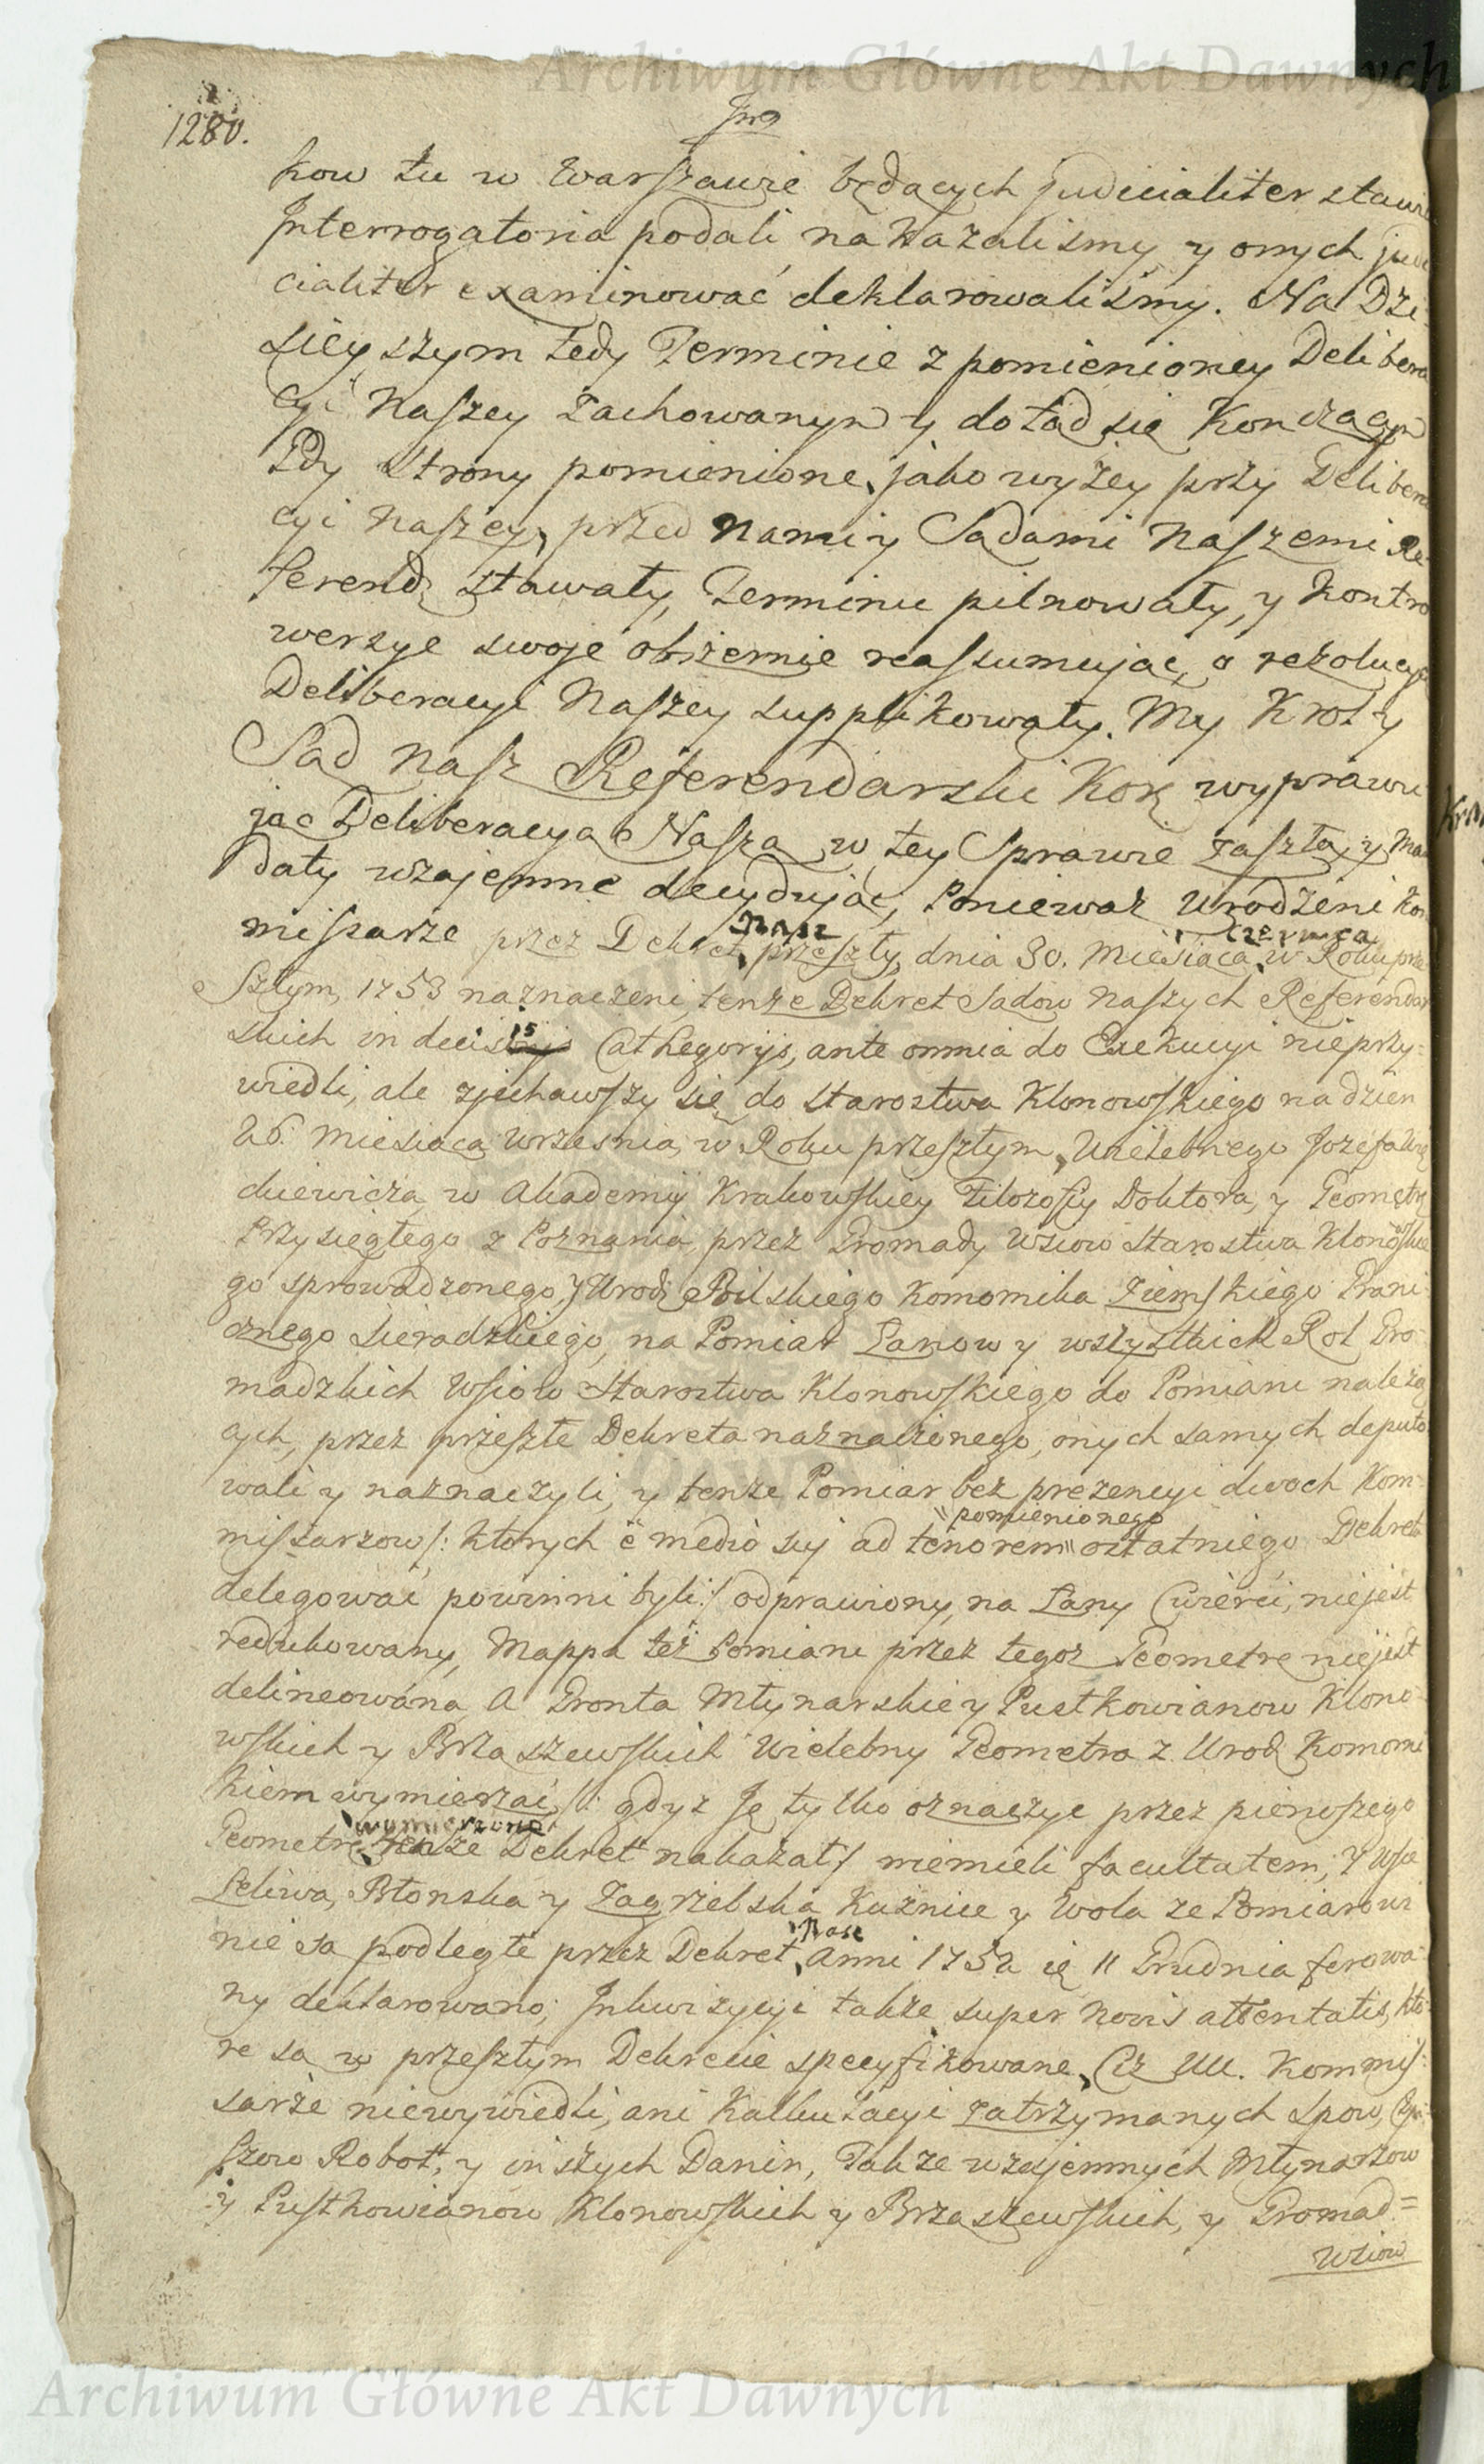 Archiwum Główne Akt Dawnych
1280.
kow tu w Warszawie będących judicialiter stawie
Interrogatoria podali nakazalismy, y onych judi
cialiter examinować deklarowaliśmy. Na Dzi=
sieyszym tedy Terminie z pomienioney Delibera
cyi Naszey zachowanym y dotąd się Kończącym
Gdy Strony pomienione, jako wyżey przy Delibera
cyi Naszey, przed Nami y Sądami Naszemi Re=
ferend. stawały, Terminu pilnowały, y Kontro
wersye swoje obszernie reassumując, o rezolucyą
Deliberacyi Naszey supplikowały. My Krol y
Sąd Nasz Referendarski Kor. wyprawu
jąc Deliberacyą Naszą w tey Sprawie zaszłą, y Man
daty wzajemne decydując, Poniewaz Urodzeni Kom
missarze przez Dekret Nasz przeszły, dnia 30. Miesiąca Czerwca w Roku prze
Szłym, 1753 naznaczeni, tenże Dekret Sądow Naszych Referendar
skich in decisis Cathegorijs, ante omnia do Exekucyi nieprzy=
wiedli, ale zjechawszy się do Starostwa Klonowskiego na dzien
26. Miesiąca Wrzesnia, w Roku przeszłym, Wielebnego Jozefa
ckiewicza w Akademij Krakowskiey Filozofij Doktora, y Geometrę
Przysięgłego z Poznania, przez Gromady Wsiow Starostwa Klonowskie
go sprowadzonego, y Urodz. Bilskiego Komornika Ziemskiego Grani
cznego Sieradzkiego, na Pomiar Łanow y wszystkich Rol Gro=
madzkich Wsiow Starostwa Klonowskiego do Pomiaru należą
cych, przez przeszłe Dekreta naznaczonego, onych samych deputo
wali y naznaczyli, y tenże Pomiar bez prezencyi dwoch Kom=
missarzow /: ktorych è medio sui ad tenorem pomienionego ostatniego Dekretu
delegować powinni byli :/ odprawiony, na Łany Cwierci, niejest
redukowany, Mappa też Pomiaru przez tegoż Geometrę niejest
delineowana, A Gronta Młynarskie y Pustkowianow Klono=
wskich y Brzaszewskich Wielebny Geometra z Urodz. Komorni
kiem wymierzać /: gdyż Je tylko oznaczyć przez pierwszego
Geometrę wymierzone tenże Dekret nakazał :/ niemieli facultatem; Y Wsie
Leliwa, Błonska y Zagrzebska Kuźnice y Wola ze Pomiarowi
nie są podległe przez Dekret Nasz Anni 1752 11 Grudnia ferowa=
ny deklarowano; Inkwizycyi także super novis attentatis, kto=
re są w przeszłym Dekrecie specyfikowane, Ciż UU. Kommis=
sarze niewywiedli, ani Kalkulacyi zatrzymanych Spow, Czyn=
szow Robot, y inszych Danin, Takze wzajemnych Młynarzow
y Pustkowianow Klonowskich y Brzaszewskich, y Gromad=
Wsiow
Archiwum Główne Akt Dawnych